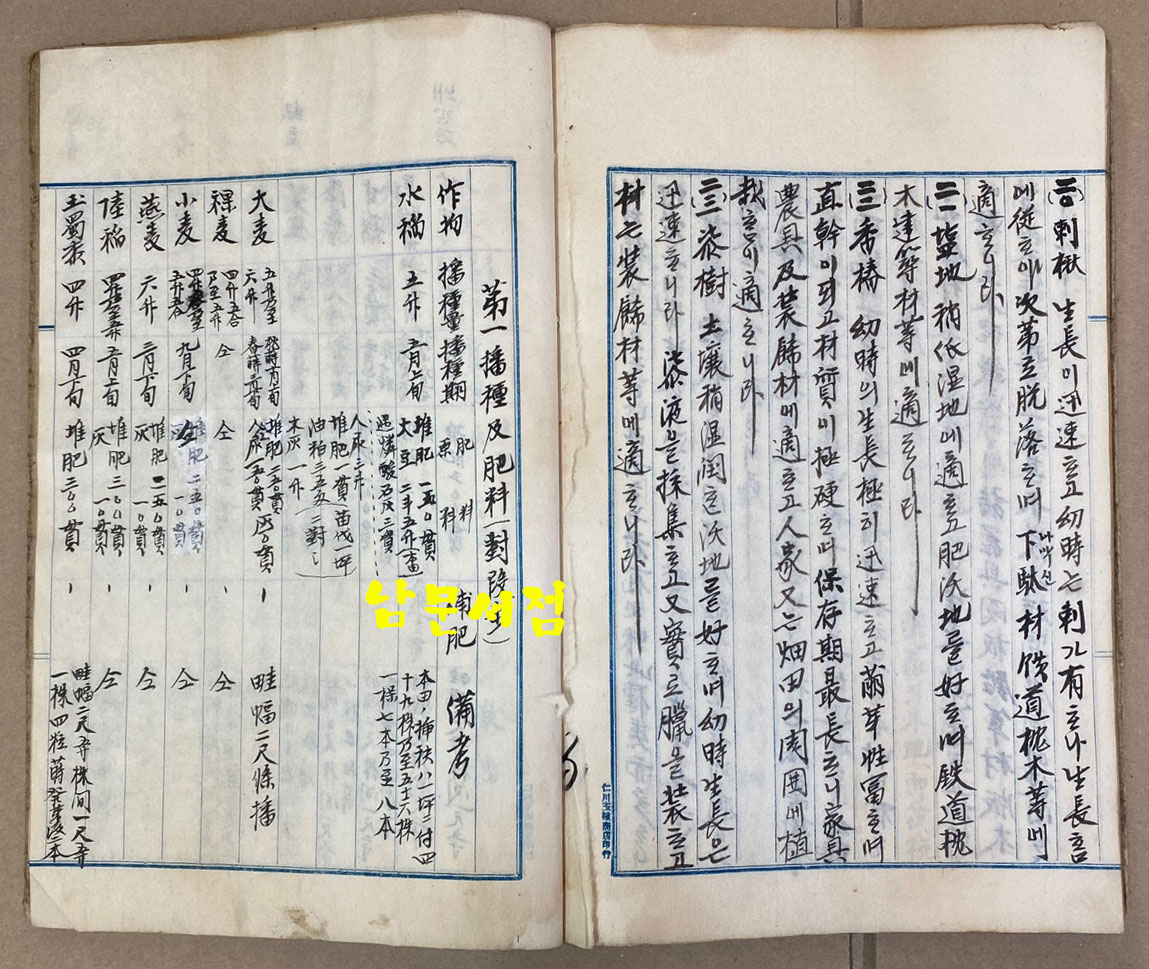 (二〇)刺楸 生長이迅速ᄒᆞ고幼時ᄂᆞᆫ刺가有ᄒᆞ나生長ᄒᆞᆷ
에從ᄒᆞ야次第로脫落ᄒᆞ며下駄材鉄道枕木等에
나막신
適ᄒᆞ니라
(二一)塩地 稍低湿地에適ᄒᆞ고肥沃地를好ᄒᆞ며鉄道枕
木建築材等에適ᄒᆞ니라
(二二)香椿 幼時의生長極히迅速ᄒᆞ고萠芽性冨ᄒᆞ며
直幹이되고材質이極硬ᄒᆞ며保存期最長ᄒᆞ니家具
農具及装餙材에適ᄒᆞ고人家又는畑田의周囲에植
栽ᄒᆞᆷ이適ᄒᆞ니라
(二三)漆樹 土壤稍湿润ᄒᆞᆫ沃地를好ᄒᆞ며幼時生長은
迅速ᄒᆞ니라 漆液을採集ᄒᆞ고又實로臘을装ᄒᆞ고
材는装餙材等에適ᄒᆞ니라
仁川玉積商店印行
第一播種及肥料(對段步)
作物 播種量 播種期 肥料 原料 補肥 備考
水稲 五升 五月上旬 堆肥 一五〇貫
大豆 二斗五升
過燐酸石灰三貫
人尿三斗
堆肥一貫苗代一坪
油粕三五匁ニ對
木灰一升
本田ノ挿秧ハ一坪ニ付四
十九株乃至五十六株
一株七本乃至八本
大麦 六升 堆肥二五〇貫 畦幅二尺條播
裸麦 四升五合乃至五升 仝 仝 仝
小麦 九月下旬 堆肥二五〇貫 仝
燕麦 六升 三月下旬 堆肥二五〇貫 灰 一〇貫 仝
陸稲 五月上旬 堆肥三〇〇貫 灰 一〇貫 仝
玉蜀黍 四升 四月下旬 堆肥二〇〇貫 畦幅二尺五寸株間一尺五寸
一株四粒蒔發芽後二本
남문서점